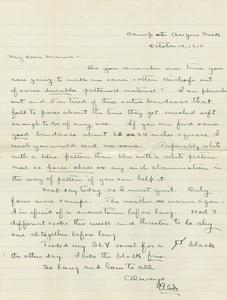 Camp at Angus Creek
October 10, 1910
My dear Mama -
Do you remember one time you
were going to make me some cotton kerchiefs out
of some durable patterned material? I am plumb
out and I'm tired of these cotton bandanas that
fall to pieces about the time they get washed soft
enough to be of any use. If you can find some
good bandanas about 22 or 24 inches square I
wish you would send me some. Preferably white
with a blue pattern then blue with a white pattern
and no horse-shoes or any such abomination in
the way of pattern if you can help it.
today so I must quit. Only
four more camps. The weather is warm again
I'm afraid of a snow storm before long. Had 3
different cooks this week and threaten to be shy
one altogether before long.
I traded my S&W novel for a black
the other day. I like the black fine.
So long and love to all
Always